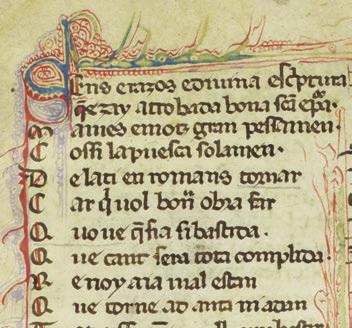 Sens e razos e diuina esc͛ptura
q̄ ezay attrobada bona sc̄a e pᷓa.
M am es e mot gran pessamen.
C ossi la puesca solamen.
D e lati en romans tornar
C ar qͥ uol bon̄ obra far
O uo ue q̄ sia si bastida.
Q ue cant sera tota complida.
R e noy aia mal estan
Q ue torne ad anta ni a dan